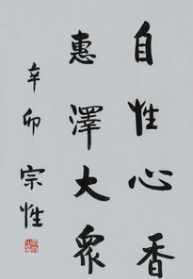 自性心香
惠澤大眾
辛卯 宗性